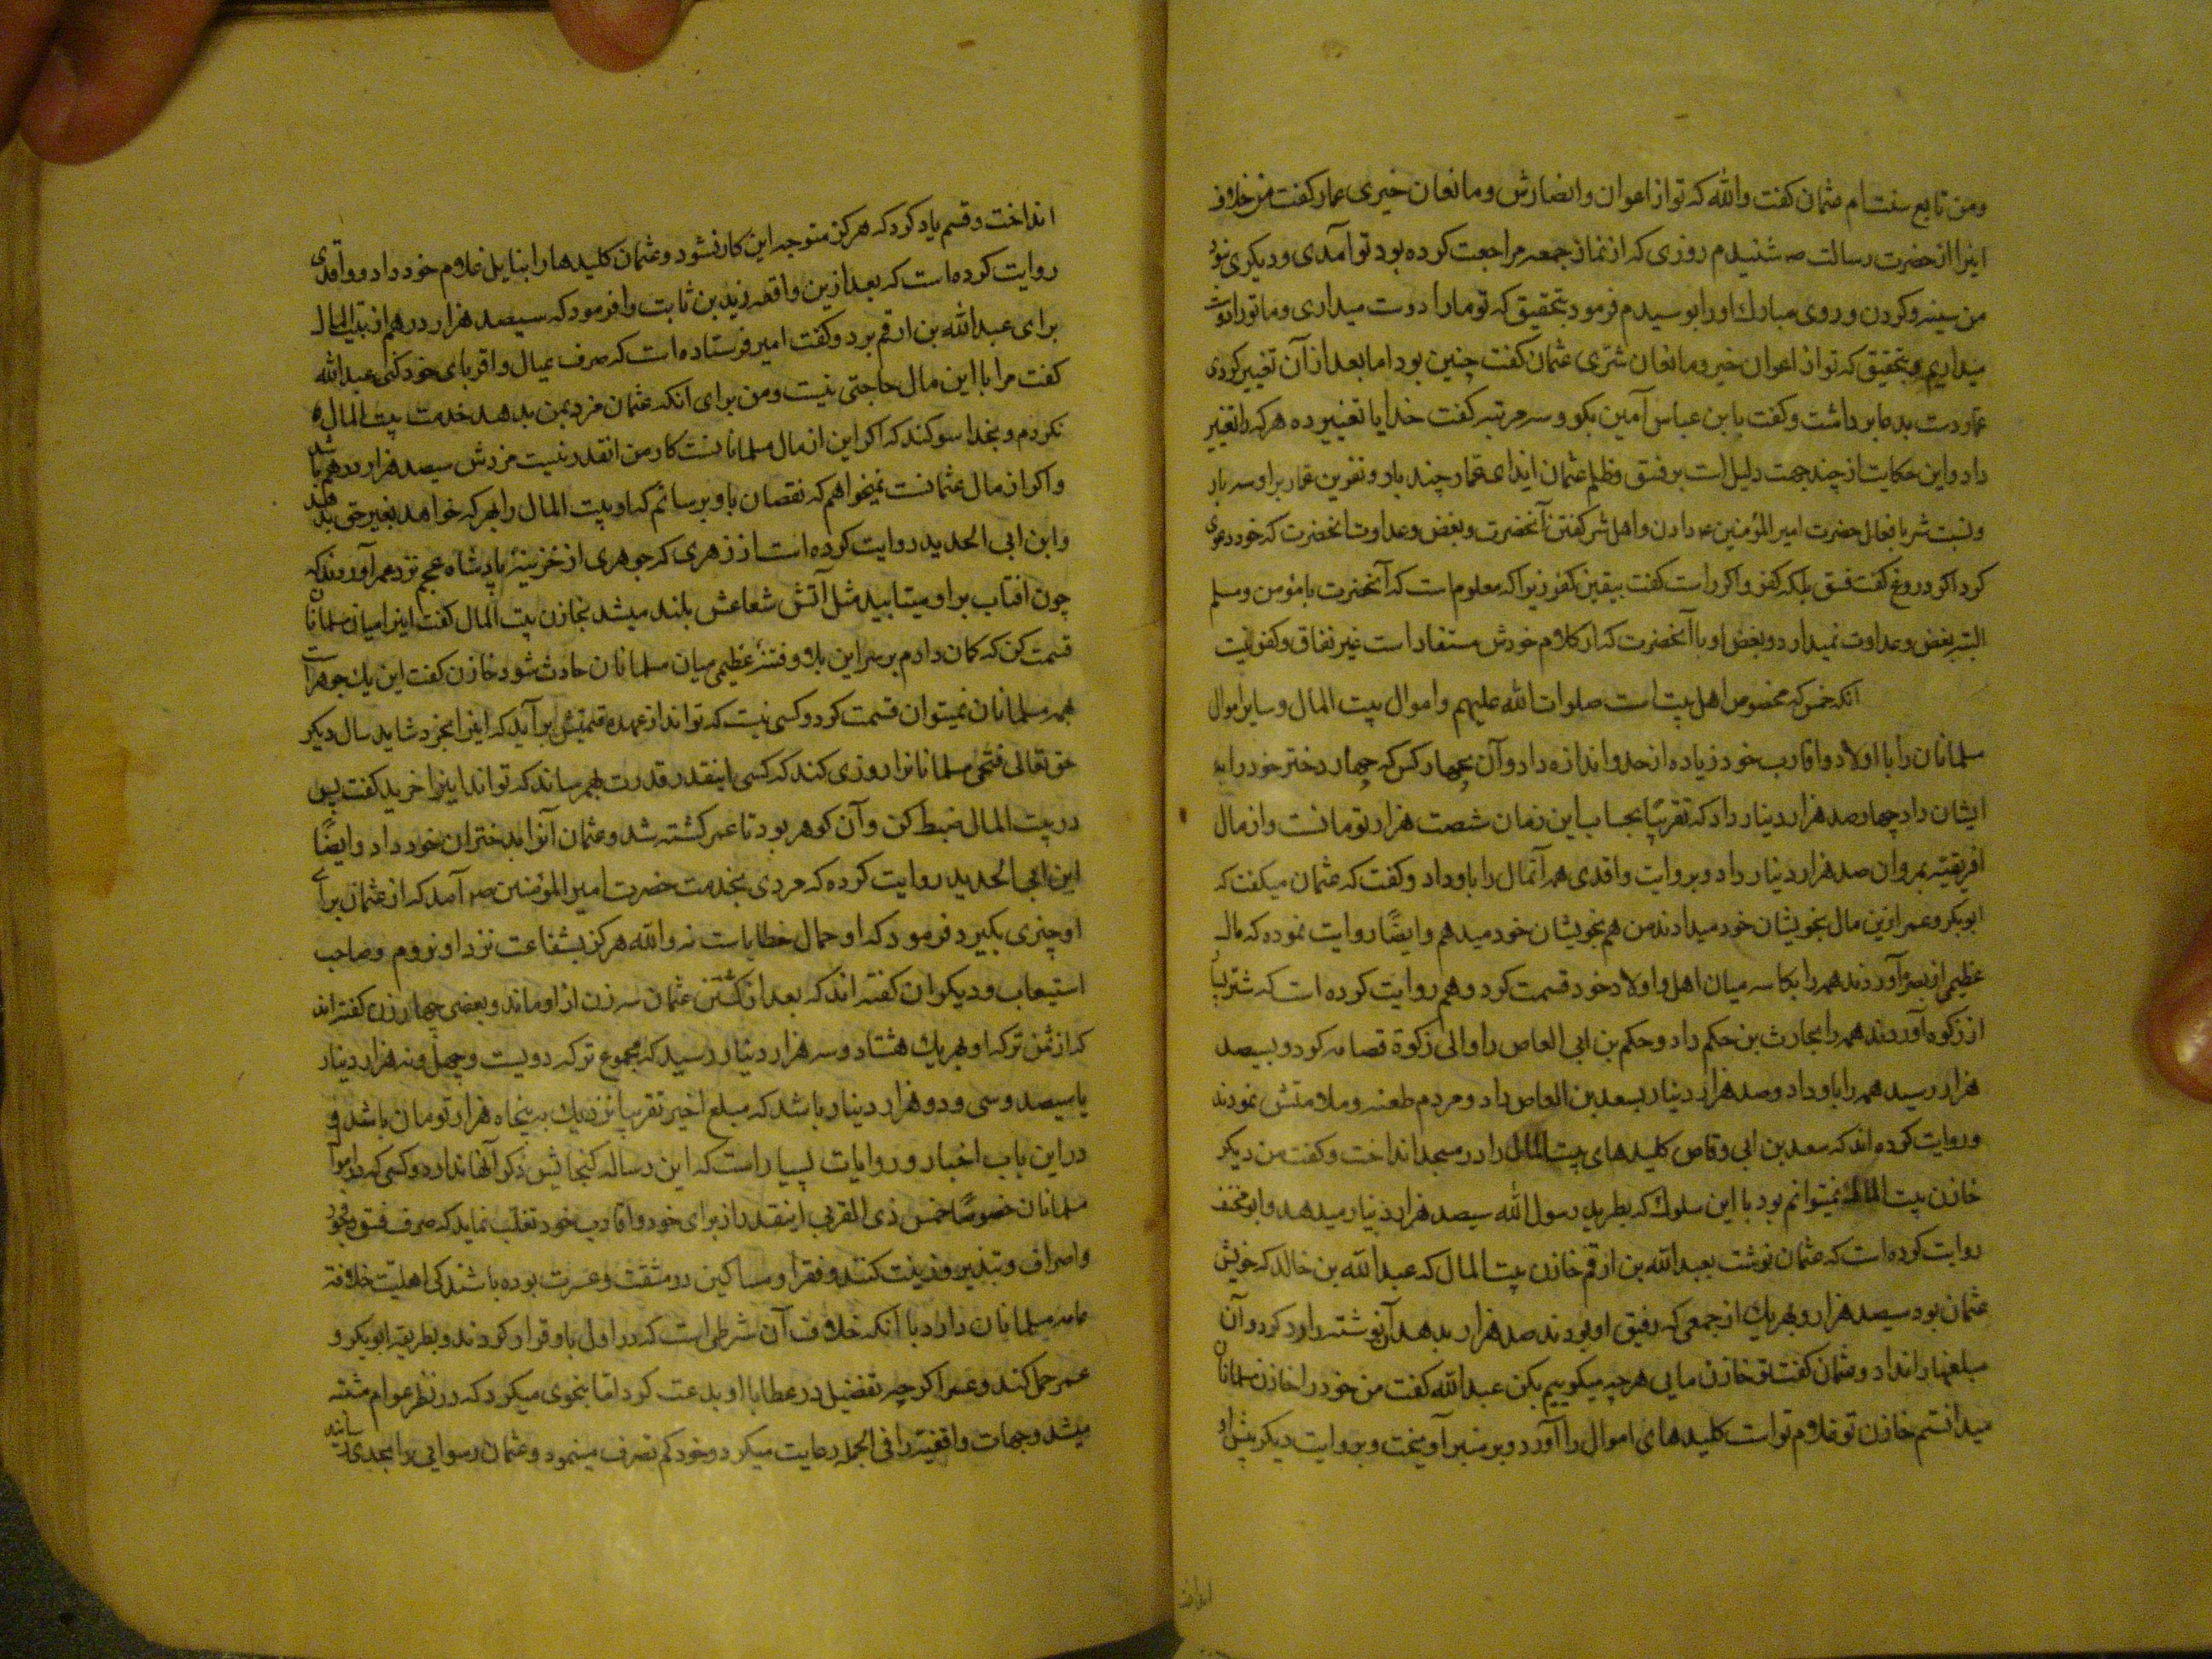 ومن تابع سنت‌ام عثمان کفت والله که تو از اعوان وانصارش ومانعان خیری عمار کفت من خلاف
اینرا از حضرت رسالت صـ شنیدم روزی که از نماز جمعه مراجعت کرده بود تو آمدی ودیکری نبود
من سینه وکردن وروی مبارك اورا بوسیدم فرمود بتحقیق که تو مارا دوست میداری وما تورا دوست
میداریم وبتحقیق که تو از اعوان خیر ومانعان شتری عثمان کفت چنین بود اما بعد از آن تغییر کردی
عمار دست بدعا برداشت وکفت یا بن عباس آمین بکو وسه مرتبه کفت خدایا تغییر ده هرکه را تغیر
داد واین حکایت از چند جهت دلیل است بر فسق وظلم عثمان ایذای عمار چند بار ونفرین عمار براو سه بار
ونسبت شر بافعال حضرت امیر المؤمنین عـ دادن واهل شر کفتن آنحضرت وبغض وعداوت انحضرت که خود دعوی
کرد اکر دروغ کفت فسق بلکه کفر واکر راست کفت بیقین کفر زیرا که معلوم است که آنحضرت با مؤمن ومسلم
البته بغض وعداوت نمیدارد وبغض او با آنحضرت که از کلام خودش مستفاد است غیر نفاق وکفر نیست
انکه خمس که مخصوص اهل بیت است صلوات الله علیهم واموال بیت المال وسایر اموال
مسلمانان را با اولاد واقارب خود زیاده از حد واندازه داد وآن بچهار کس که چهار دختر خود را به
ایشان داد چهارصد هزار دینار داد که تقریبًا بحساب این زمان شصت هزار تومانست واز مال
افریقیه بمروان صد هزار دینار داد وبروایت واقدی همه آنمال را باو داد وکفت که عثمان میکفت که
ابوبکر وعمر ازین مال بخویشان خود میدادند من هم بخویشان خود میدهم وایضًا روایت نموده که مال
عظیمی از بصره آوردند همه را بکاسه میان اهل واولاد خود قسمت کرد وهم روایت کرده است که شتر بسیار
از زکوه آوردند همه را بحارث بن حکم داد وحکم بن ابی العاص را والی زکوة قضاعه کرد وبسیصد
هزار رسید همه را باو داد وصد هزار دینار بسعد بن العاص داد ومردم طعنه وملامتش نمودند
وروایت کرده اند که سعد بن ابی وقاص کلیدهای بیت المال را در مسجد انداخت وکفت من دیکر
خازن بیت المال نمیتوانم بود با این سلوك که بطرید رسول الله سیصد هزار دینار میدهد وابو مخنف
روایت کرده است که عثمان نوشت بعبد الله بن ارقم خازن بیت المال که عبد الله بن خالد که خویش
عثمان بود سیصد هزار وبهریك از جمعی که رفیق او بودند صد هزار بدهد آن نوشته را رد کرد وآن
مبلغها را نداد وعثمان کفت تو خازن مایی هرچه میکوییم بکن عبد الله کفت من خود را خازن مسلمانان
میدانستم خازن تو غلام تو است کلیدهای اموال را آورد وبر منبر آویخت وبروایت دیکر پیش او
انداخت
انداخت وقسم یاد کرد که هرکز متوجه این کار نشود وعثمان کلیدها را بنایل غلام خود داد وواقدی
روایت کرده است که بعد ازین واقعه زید بن ثابت را فرمود که سیصد هزار درهم از بیت المال
برای عبد الله بن ارقم برد وکفت امیر فرستاده است که صرف عیال واقربای خود کنی عبد الله
کفت مرا با این مال حاجتی نیست ومن برای انکه عثمان مزد بمن بدهد خدمت بیت المال
نکردم وبخدا سوکند که اکر این از مال مسلمانانست کار من انقدر نیست مزدش سیصد هزار درهم باشد
واکر از مال عثمانست نمیخواهم که نقصان باو برسانم که او بیت المال را بهرکه خواهد بغیر حق بدهد
وابن ابی الحدید روایت کرده است از زهری که جوهری از خزینهٔ پادشاه عجم نزد عمر آوردند که
چون افتاب براو میتابید مثل آتش شعاعش بلند میشد بخازن بیت المال کفت اینرا میان مسلمانان
قسمت کن که کمان دارم برسر این بلا وفتنهٔ عظیمی میان مسلمانان حادث شود خازن کفت این یك جوهر است
بهمه مسلمانان نمیتوان قسمت کرد وکسی نیست که تواند از عهده قیمتش برآید که اینرا بخرد شاید سال دیکر
حق تعالی فتحی مسلمانانرا روزی کند که کسی اینقدر قدرت بهم رساند که تواند اینرا خرید کفت پس
در بیت المال ضبط کن وآن کوهر بود تا عمر کشته شد وعثمان آنرا بدختران خود داد وایضًا
ابن ابی الحدید روایت کرده که مردی بخدمت حضرت امیر المؤمنین صـ آمد که از عثمان برای
او چیزی بکیرد فرمود که او حمال خطایاست نه والله هرکز بشفاعت نزد او نروم وصاحب
استیعاب ودیکران کفته اند که بعد از کشتن عثمان سه زن از او ماند وبعضی چهار زن کفته اند
که از ثمن ترکه او بهریك هشتاد وسه هزار دینار رسید که مجموع ترکه دویست وچهل ونه هزار دینار
یا سیصد وسی ودو هزار دینار باشد که مبلغ اخیر تقریبا نزدیك به پنجاه هزار تومان باشد و
در این باب اخبار وروایات بسیار است که این رساله کنجایش ذکر آنها ندارد وکسی که در اموال
مسلمانان خصوصًا خمس ذی القربی اینقدر از برای خود واقارب خود تغلب نماید که صرف فسق وفجور
واسراف وتبذیر وزینت کنند وفقرا ومساکین در مشقت وعسرت بوده باشند کی اهلیت خلافة
عامه مسلمانان دارد با آنکه خلاف آن شرطی است که در اول باو قرار کردند وبطریقه ابوبکر و
عمر عمل کند وعمر اکرچه تفضیل در عطایا او بدعت کرد اما بنحوی میکرد که در نظر عوام مشتبه
میشد وجهات واقعیه را فی الجمله رعایت میکرد وخود کم تصرف مینمود وعثمان رسوایی را بحدی رسانید